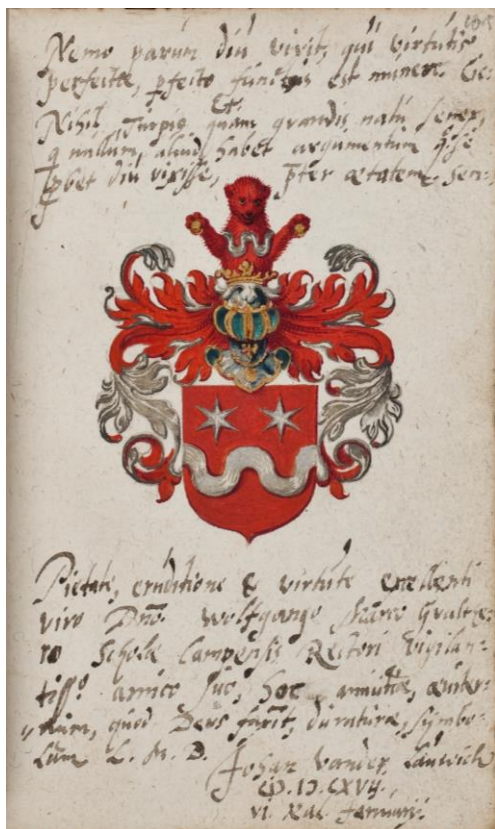 Nemo parum diu vivit, qui virtutis
perfectæ, pfecto functus est munere. Cic:
Et.
Nihil Turpis quam grandis natu senex,
q nullum aliud habet argumentum q se
pbet diu vixisse, pter ætatem. Sen:
Pietate, eruditione & virtute excellenti
viro Dno. Wolfgango Gvalte-
ro Scholæ Campensis Rectori Vigilan-
tisso amico suo, hoc amicitiæ, æviter-
num, quod Deus faxit, duraturæ, symbo-
lum L. M. D.
Johan vander Lauwick
CIↃ.IↃ.CXVII.
VI Kal Januarij.